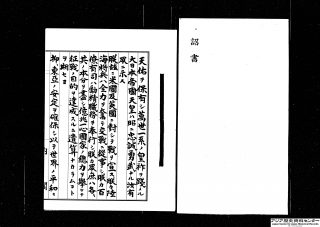 詔書
天佑ヲ保有シ萬世一系ノ皇祚ヲ踐メル
大日本帝國天皇ハ昭ニ忠誠勇武ナル汝有
眾ニ示ス
朕茲ニ米國及英國ニ對シテ戰ヲ宣ス朕カ陸
海將兵ハ全力ヲ奮テ交戰ニ從事シ朕カ百
僚有司ハ勵精職務ヲ奉行シ朕カ眾庶ハ各
其ノ本分ヲ盡シ億兆一心國家ノ總力ヲ擧ケテ
征戰ノ目的ヲ達成スルニ遺算ナカラムコト
ヲ期セヨ
抑東亞ノ安定ヲ確保シ以テ世界ノ平和ニ
アジア歴史資料センター